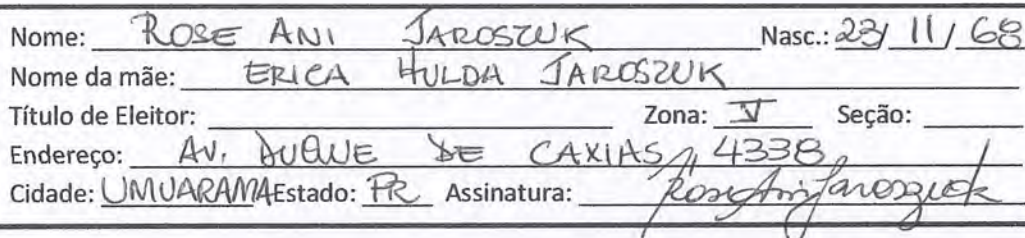 Nome: ROSE ANI JAROSZUK Nasc.: 23/ 11/ 68
Nome da mãe: ERICA HULDA JAROSZUK
Título de Eleitor: Zona: V Seção:
Endereço: AV. DUQUE DE CAXIAS, 4338
Cidade: UMUARAMA Estado: PR Assinatura: Rose Ani Jaroszuk